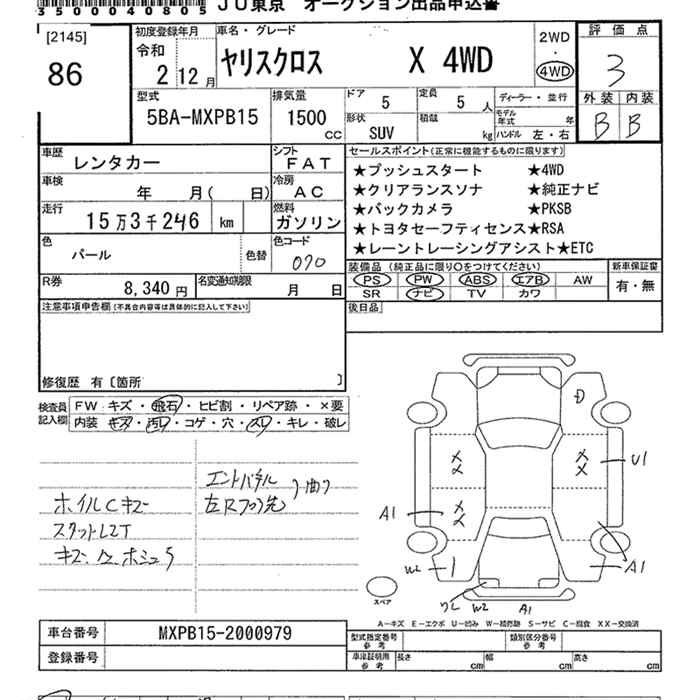 350004080S
JU東京 オークション出品申込書
[2145]
86
初度登録年月
令和
2 12月
車名・グレード
ヤリスクロス X 4WD
2WD
・
4WD
評価点
3
外装 内装
B B
型式
5BA-MXPB15
排気量
1500
CC
ドア
5
定員
5 人
形状
SUV
積載
kg
ディーラー・並行
モデル年式 年
ハンドル 左・右
車歴
レンタカー
シフト
FAT
車検
年 月( 日)
冷房
AC
走行
15万3千246 km
燃料
ガソリン
色
パール
色替
色コード
070
R券
8,340 円
名変通知期限
月 日
セールスポイント(正常に機能するものに限ります)
★プッシュスタート ★4WD
★クリアランスソナ ★純正ナビ
★バックカメラ ★PKSB
★トヨタセーフティセンス★RSA
★レーントレーシングアシスト★ETC
装備品(純正品に限り○をつけてください)
PS PW ABS エアB AW
SR ナビ TV カワ
新車保証書
有・無
後日品
注意事項申告欄(不具合内容等は具体的に記入して下さい)
修復歴 有〔箇所 〕
検査員記入欄
FW キズ・飛石・ヒビ割・リペア跡・×要
内装 キズ・汚レ・コゲ・穴・スレ・キレ・破レ
ホイルCキズ
エントパネル
左Rフロア先
曲り
D
××
××
××
U1
A1
A1
W2
W2
A1
スペア
A-キズ E-エクボ U-凹み W-補修跡 S-サビ C-腐食 XX-交換済
車台番号
MXPB15-2000979
登録番号
型式指定番号
参考
類別区分番号
参考
車庫証明用
参考
長さ cm
幅 cm
高さ cm